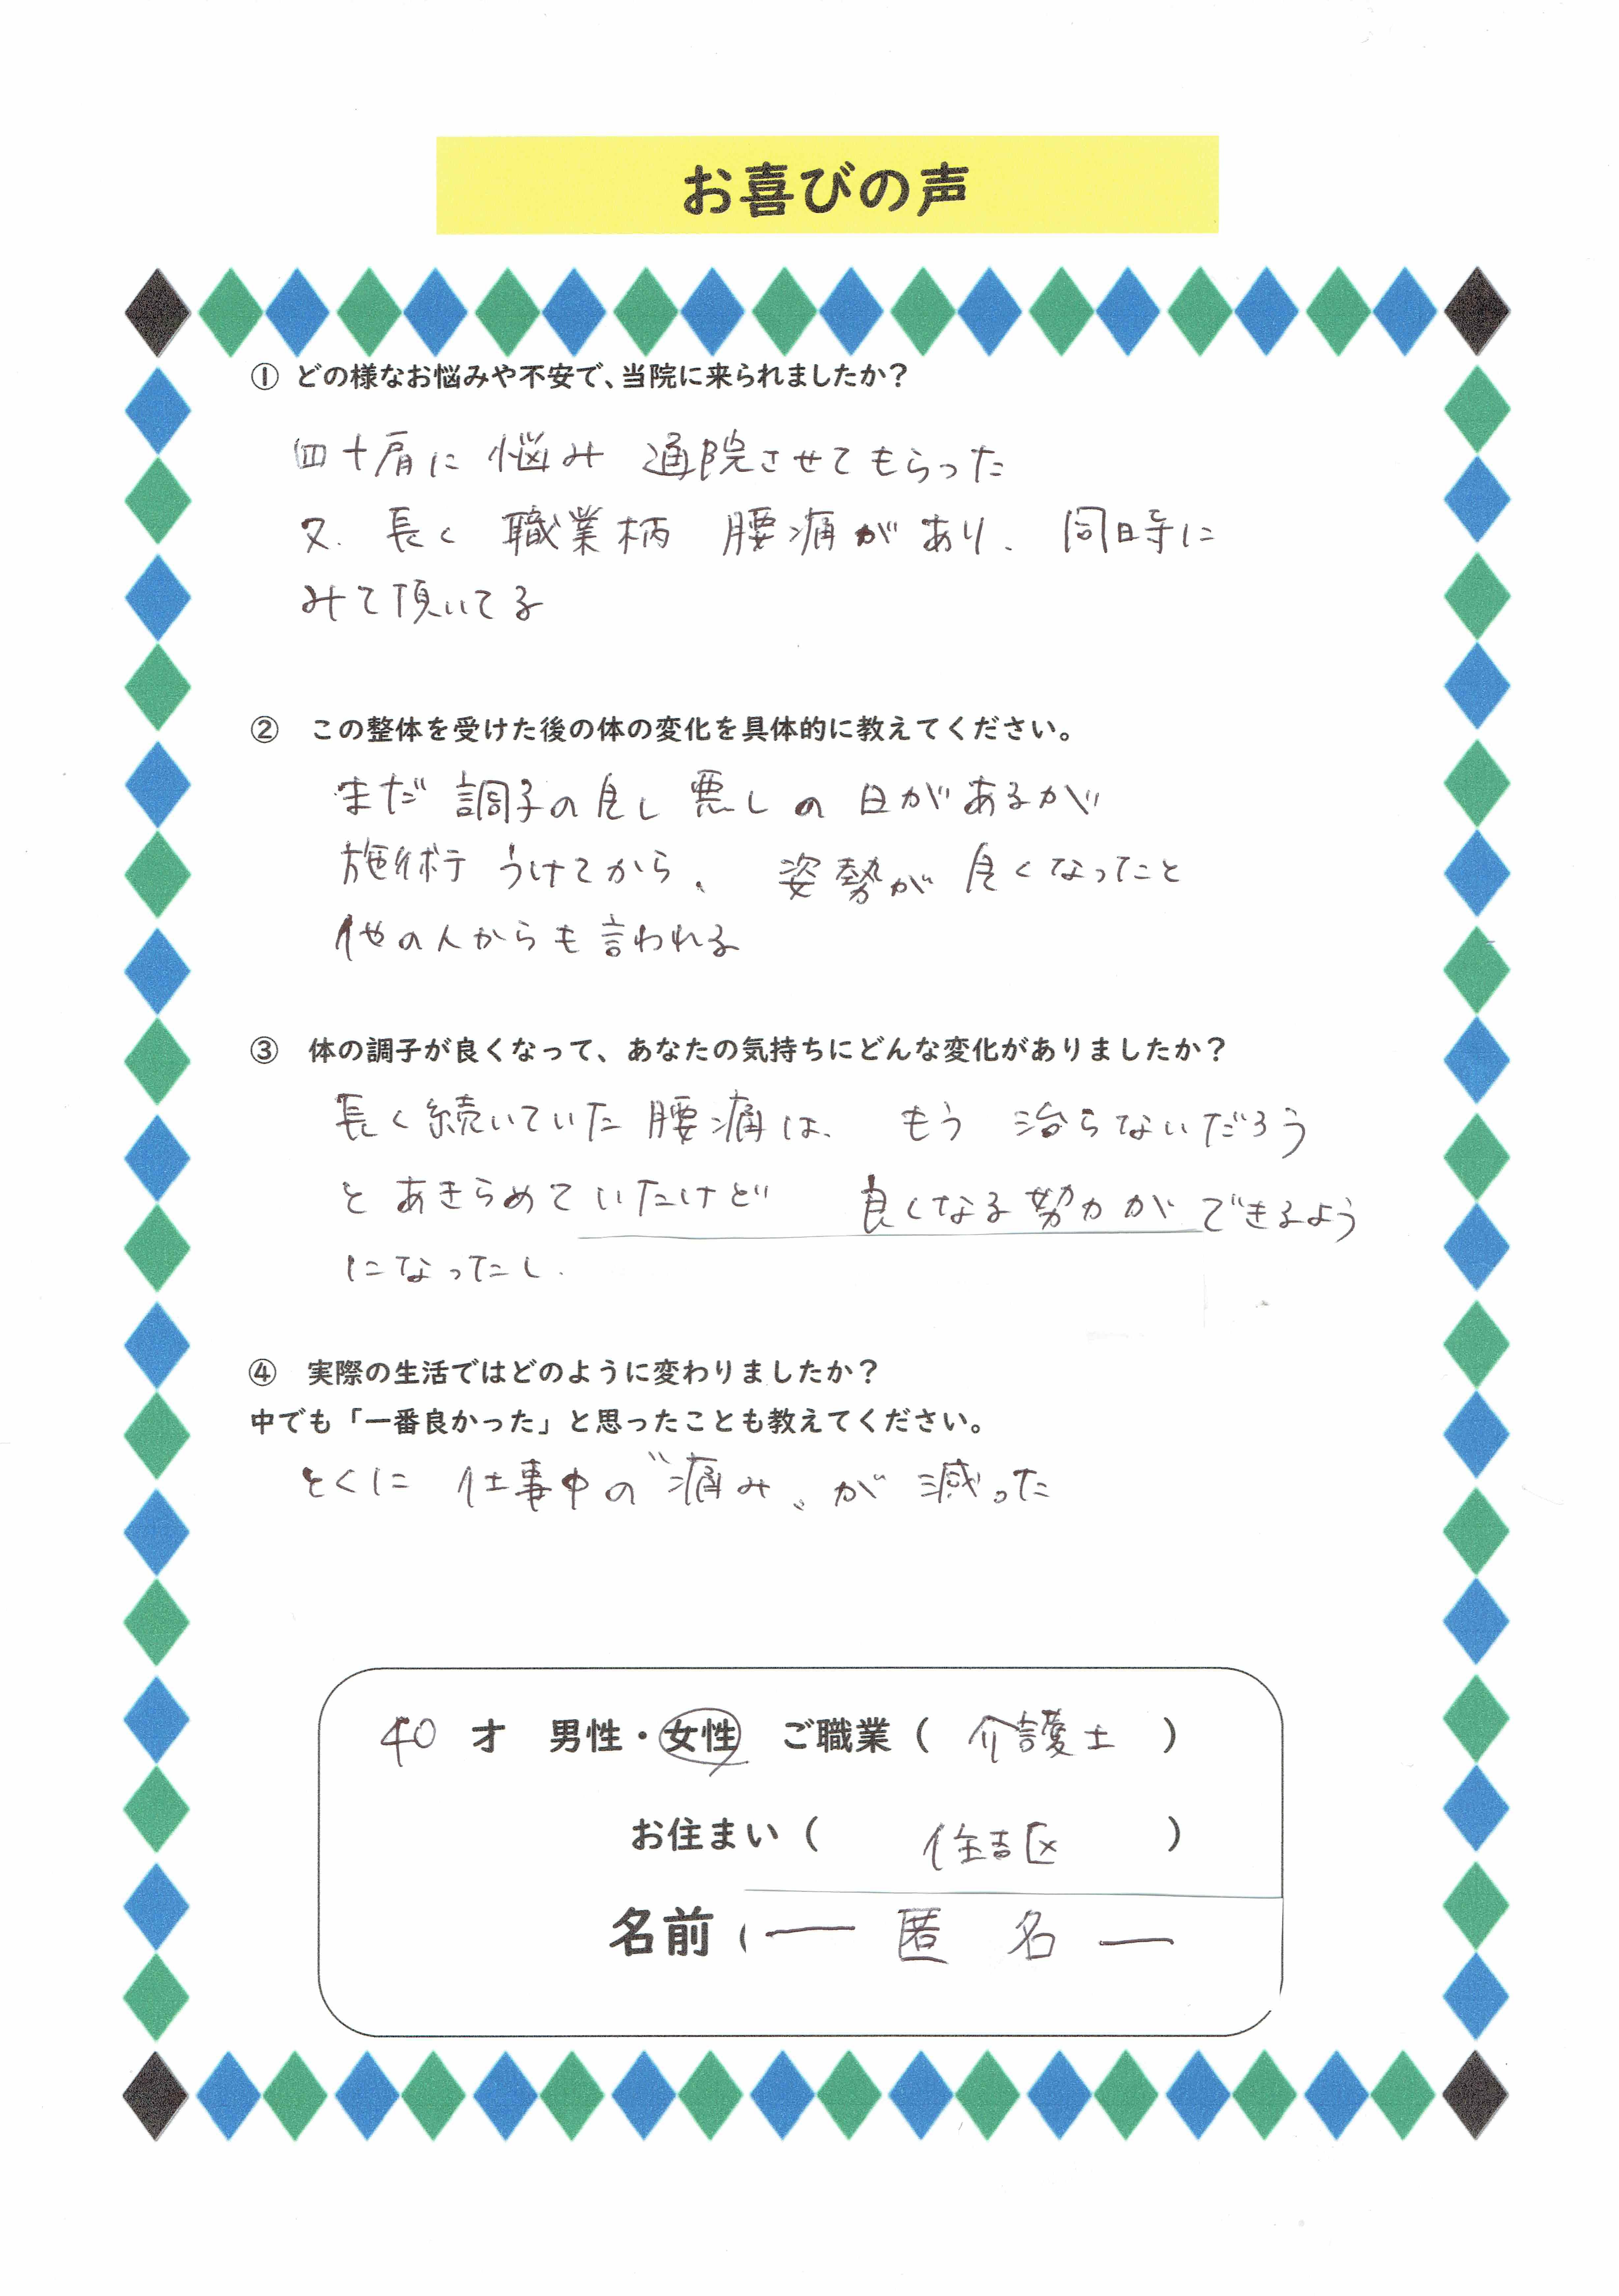 お喜びの声
① どの様なお悩みや不安で、当院に来られましたか？
四十肩に 悩み 通院させてもらった
又、長く 職業柄 腰痛があり、同時に
みて頂いてる
② この整体を受けた後の体の変化を具体的に教えてください。
まだ 調子の良し悪しの日があるが
施術うけてから、姿勢が良くなったこと
他の人からも言われる
③ 体の調子が良くなって、あなたの気持ちにどんな変化がありましたか？
長く続いていた腰痛は、もう 治らないだろう
とあきらめていたけど 良くなる努力ができるよう
になったし、
④ 実際の生活ではどのように変わりましたか？
中でも「一番良かった」と思ったことも教えてください。
とくに 仕事中の〝痛み〟が 減った
40 才 男性・女性 ご職業（ 介護士 ）
お住まい（ 住吉区 ）
名前（ ― 匿名 ―